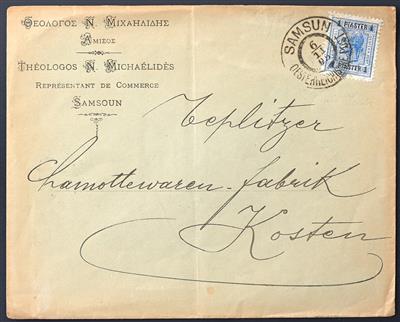 Θεολογος Ν. Μιχαηλιδης
Αμισος
Théologos N. Michaélidès
Représentant de Commerce
Samsoun
SAMSUN
6/
OESTERREICHISCHE
1 PIASTER 1
1 PIASTER 1
Teplitzer
Chamottewaren-fabrik
Kosten